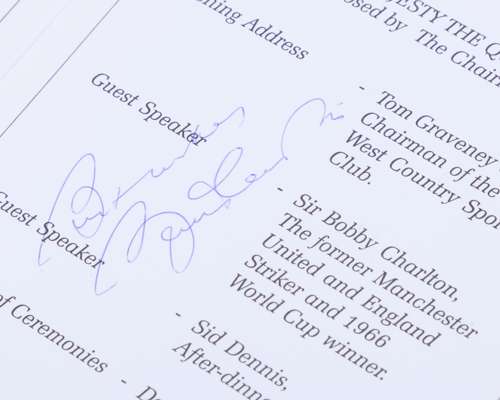 JESTY THE Q
osed by The Chair
ning Address
- Tom Graveney
Chairman of the
West Country Spor
Club.
Guest Speaker
- Sir Bobby Charlton,
The former Manchester
United and England
Striker and 1966
World Cup winner.
Guest Speaker
- Sid Dennis,
After-dinne
of Ceremonies - De